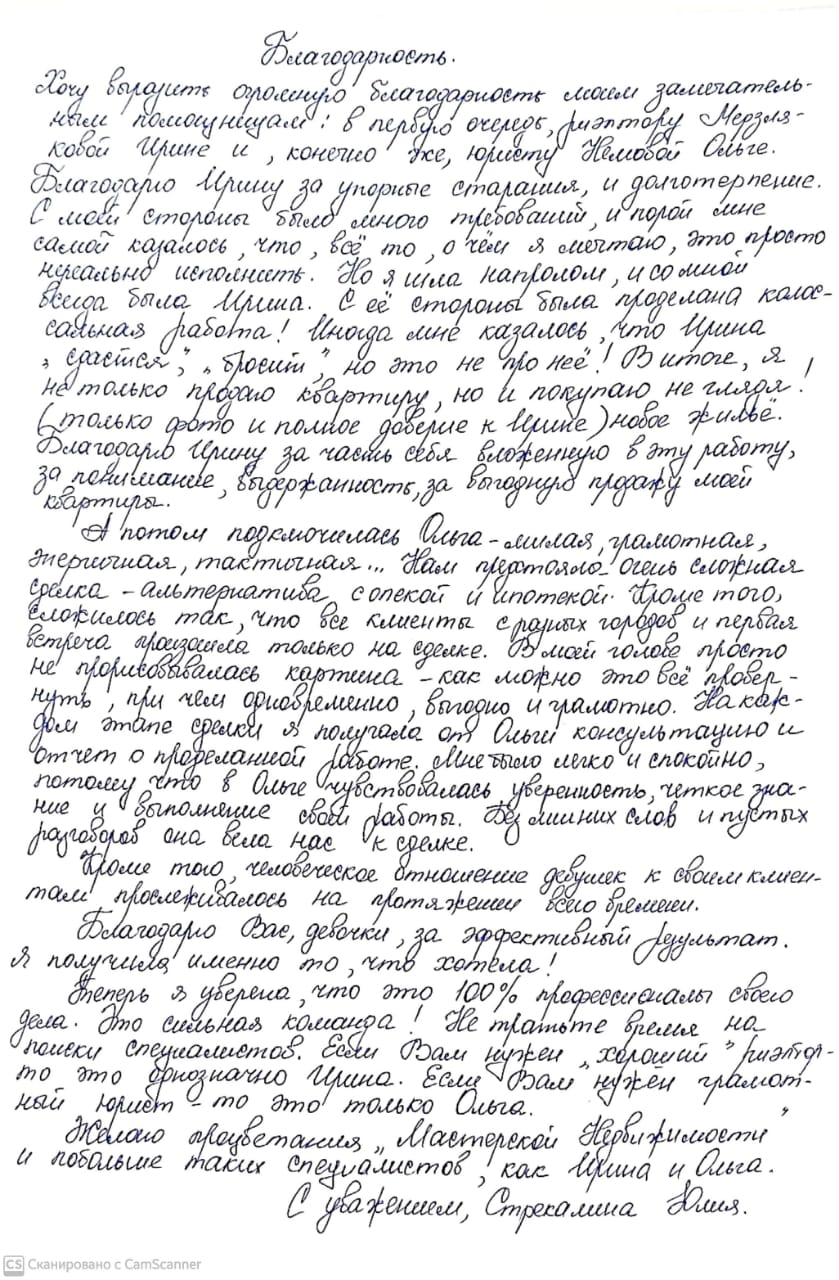 Благодарность.
Хочу выразить огромную благодарность моим замечатель-
ным помощницам: в первую очередь, риэлтору Мерзля-
ковой Ирине и, конечно же, юристу Немовой Ольге.
Благодарю Ирину за упорные старания, и долготерпение.
С моей стороны было много требований, и порой мне
самой казалось, что, всё то, о чём я мечтаю, это просто
нереально исполнить. Но я шла напролом, и со мной
всегда была Ирина. С её стороны была проделана колос-
сальная работа! Иногда мне казалось, что Ирина
„сдастся", „бросит", но это не про неё! В итоге, я
не только продаю квартиру, но и покупаю не глядя!
(только фото и полное доверие к Ирине) новое жильё.
Благодарю Ирину за часть себя вложенную в эту работу,
за понимание, выдержанность, за выгодную продажу моей
квартиры.
А потом подключилась Ольга - милая, грамотная,
энергичная, тактичная... Нам предстояла очень сложная
сделка - альтернатива, с опекой и ипотекой. Кроме того,
сложилось так, что все клиенты с разных городов и первая
встреча произошла только на сделке. В моей голове просто
не прорисовывалась картина - как можно это всё провер-
нуть, при чем одновременно, выгодно и грамотно. На каж-
дом этапе сделки я получала от Ольги консультацию и
отчет о проделанной работе. Мне было легко и спокойно,
потому что в Ольге чувствовалась уверенность, четкое зна-
ние и выполнение своей работы. Без лишних слов и пустых
разговоров она вела нас к сделке.
Кроме того, человеческое отношение девушек к своим клиен-
там прослеживалось на протяжении всего времени.
Благодарю Вас, девочки, за эффективный результат.
Я получила именно то, что хотела!
Теперь я уверена, что это 100% профессионалы своего
дела. Это сильная команда! Не тратьте время на
поиски специалистов. Если Вам нужен „хороший" риэлтор-
то это однозначно Ирина. Если Вам нужен грамот-
ный юрист - то это только Ольга.
Желаю процветания „Мастерской Недвижимости"
и побольше таких специалистов, как Ирина и Ольга.
С уважением, Стрекалина Юлия.
CS Сканировано с CamScanner